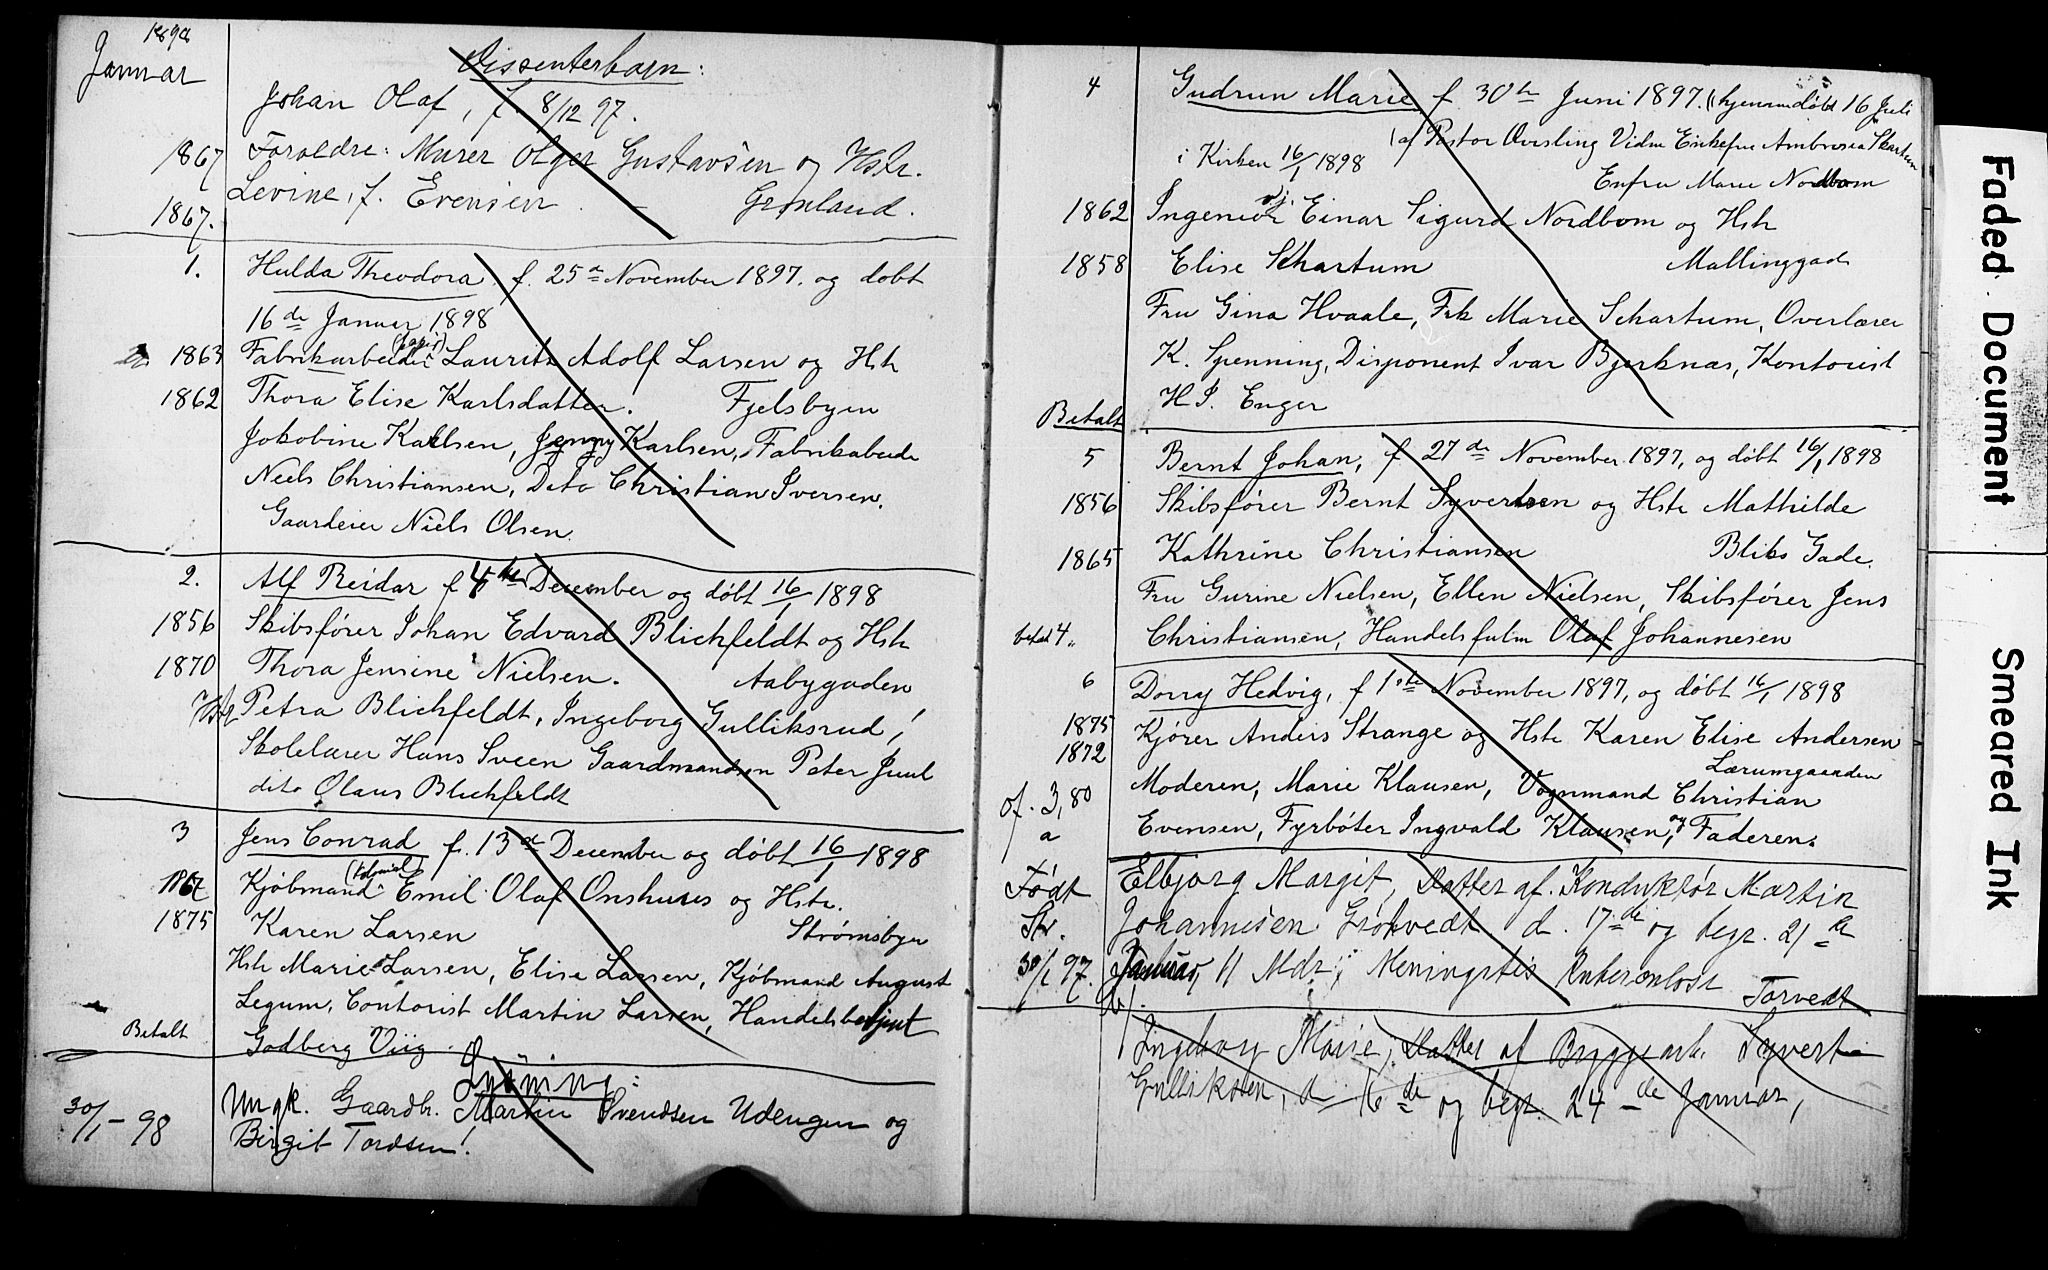 1898
Januar
Dissenterbarn:
Johan Olaf, f 8/12 97.
1867 Foraldre: Murer Olger Gustavsen og Hstr.
1867. Levine, f. Evensen - Grønland.
1. Hulda Theodora, f. 25de November 1897. og døbt
16de Januar 1898
1863 Fabrikarbeider Lauritz Adolf Larsen og Hstr
1862 Thora Elise Karlsdatter. Fjelsbyen
Jokobine Karlsen, Jenny Karlsen, Fabrikabeide
Niels Christiansen, Dito Christian Iversen,
Gaardeier Niels Olsen.
2. Alf Reidar f 4de December og døbt 16/1 1898
1856 Skibsfører Johan Edvard Blichfeldt og Hstr
1870 Thora Jensine Nielsen. Aabygaden
Hstr Petra Blichfeldt, Ingeborg Gulliksrud,
Skolelærer Hans Sveen Gaardmandsøn Peter Juul
dito Olaus Blichfeldt
3 Jens Conrad f. 13de December og døbt 16/1 1898
(kolonial)
1867 Kjøbmand Emil Olaf Onshuus og Hstr.
1875 Karen Larsen Strømsbyen
Hstr Marie Larsen, Elise Larsen, Kjøbmand August
Legum, Contorist Martin Larsen, Handelsbetjent
Betalt Godberg Viig.
Lysning:
30/1-98 Ungk. Gaardbr. Martin Svendsen Udengen og
Birgit Tordsen!
4 Gudrun Marie f 30te Juni 1897. (hjemmedøbt 16 Juli
(af Pastor Øvisling Vidne Enkefru Ambrosia Skartum
i Kirken 16/1 1898
Enfru Marie Nordbom
1862 Ingeniør Einar Sigurd Nordbom og Hstr
1858 Elise Skartum Mallinggade
Fru Gina Hvaale, Frk Marie Schartum, Overlærer
K. Spenning, Disponent Ivar Bjerknæs, Kontorist
H I. Enger
Betalt
5 Bernt Johan, f 27de November 1897, og døbt 16/1 1898
1856 Skibsfører Bernt Syvertsen og Hstr Mathilde
1865 Kathrine Christiansen Bliks Gade.
Fru Gurine Nielsen, Ellen Nielsen, Skibsfører Jens
betalt 4,, Christiansen, Handelsfulm Olaf Johannesen
6 Dorry Hedvig, f 1ste November 1897, og døbt 16/1 1898
1875 Kjører Anders Strange og Hstr Karen Elise Andersen
1872 Lærumgaarden
Moderen, Marie Klausen, Vognmand Christian
of. 3,80
a
Evensen, Fyrbøter Ingvald Klausen, og Faderen.
Født Elbjørg Margit, Datter af Konduktør Martin
Str. Johannesen Grønvedt d. 17de og begr. 21de
30/1 97. Januar, 11 Mdr; Meningitis Tuberculosa Torvedt
Ingeborg Marie, Datter af Bryggearb. Syvert
Gulliksen, d 16de og begr. 24-de Januar,
Faded Document
Smeared Ink